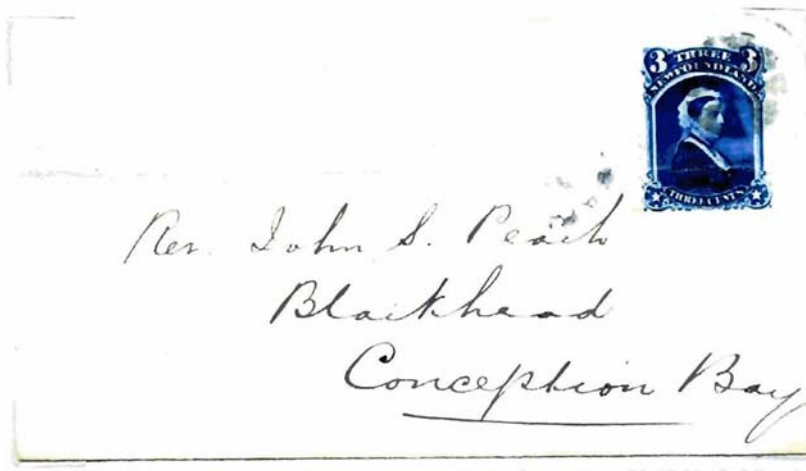 3 THREE 3
NEWFOUNDLAND
THREE CENTS
Rev. John S. Peach
Blackhead
Conception Bay